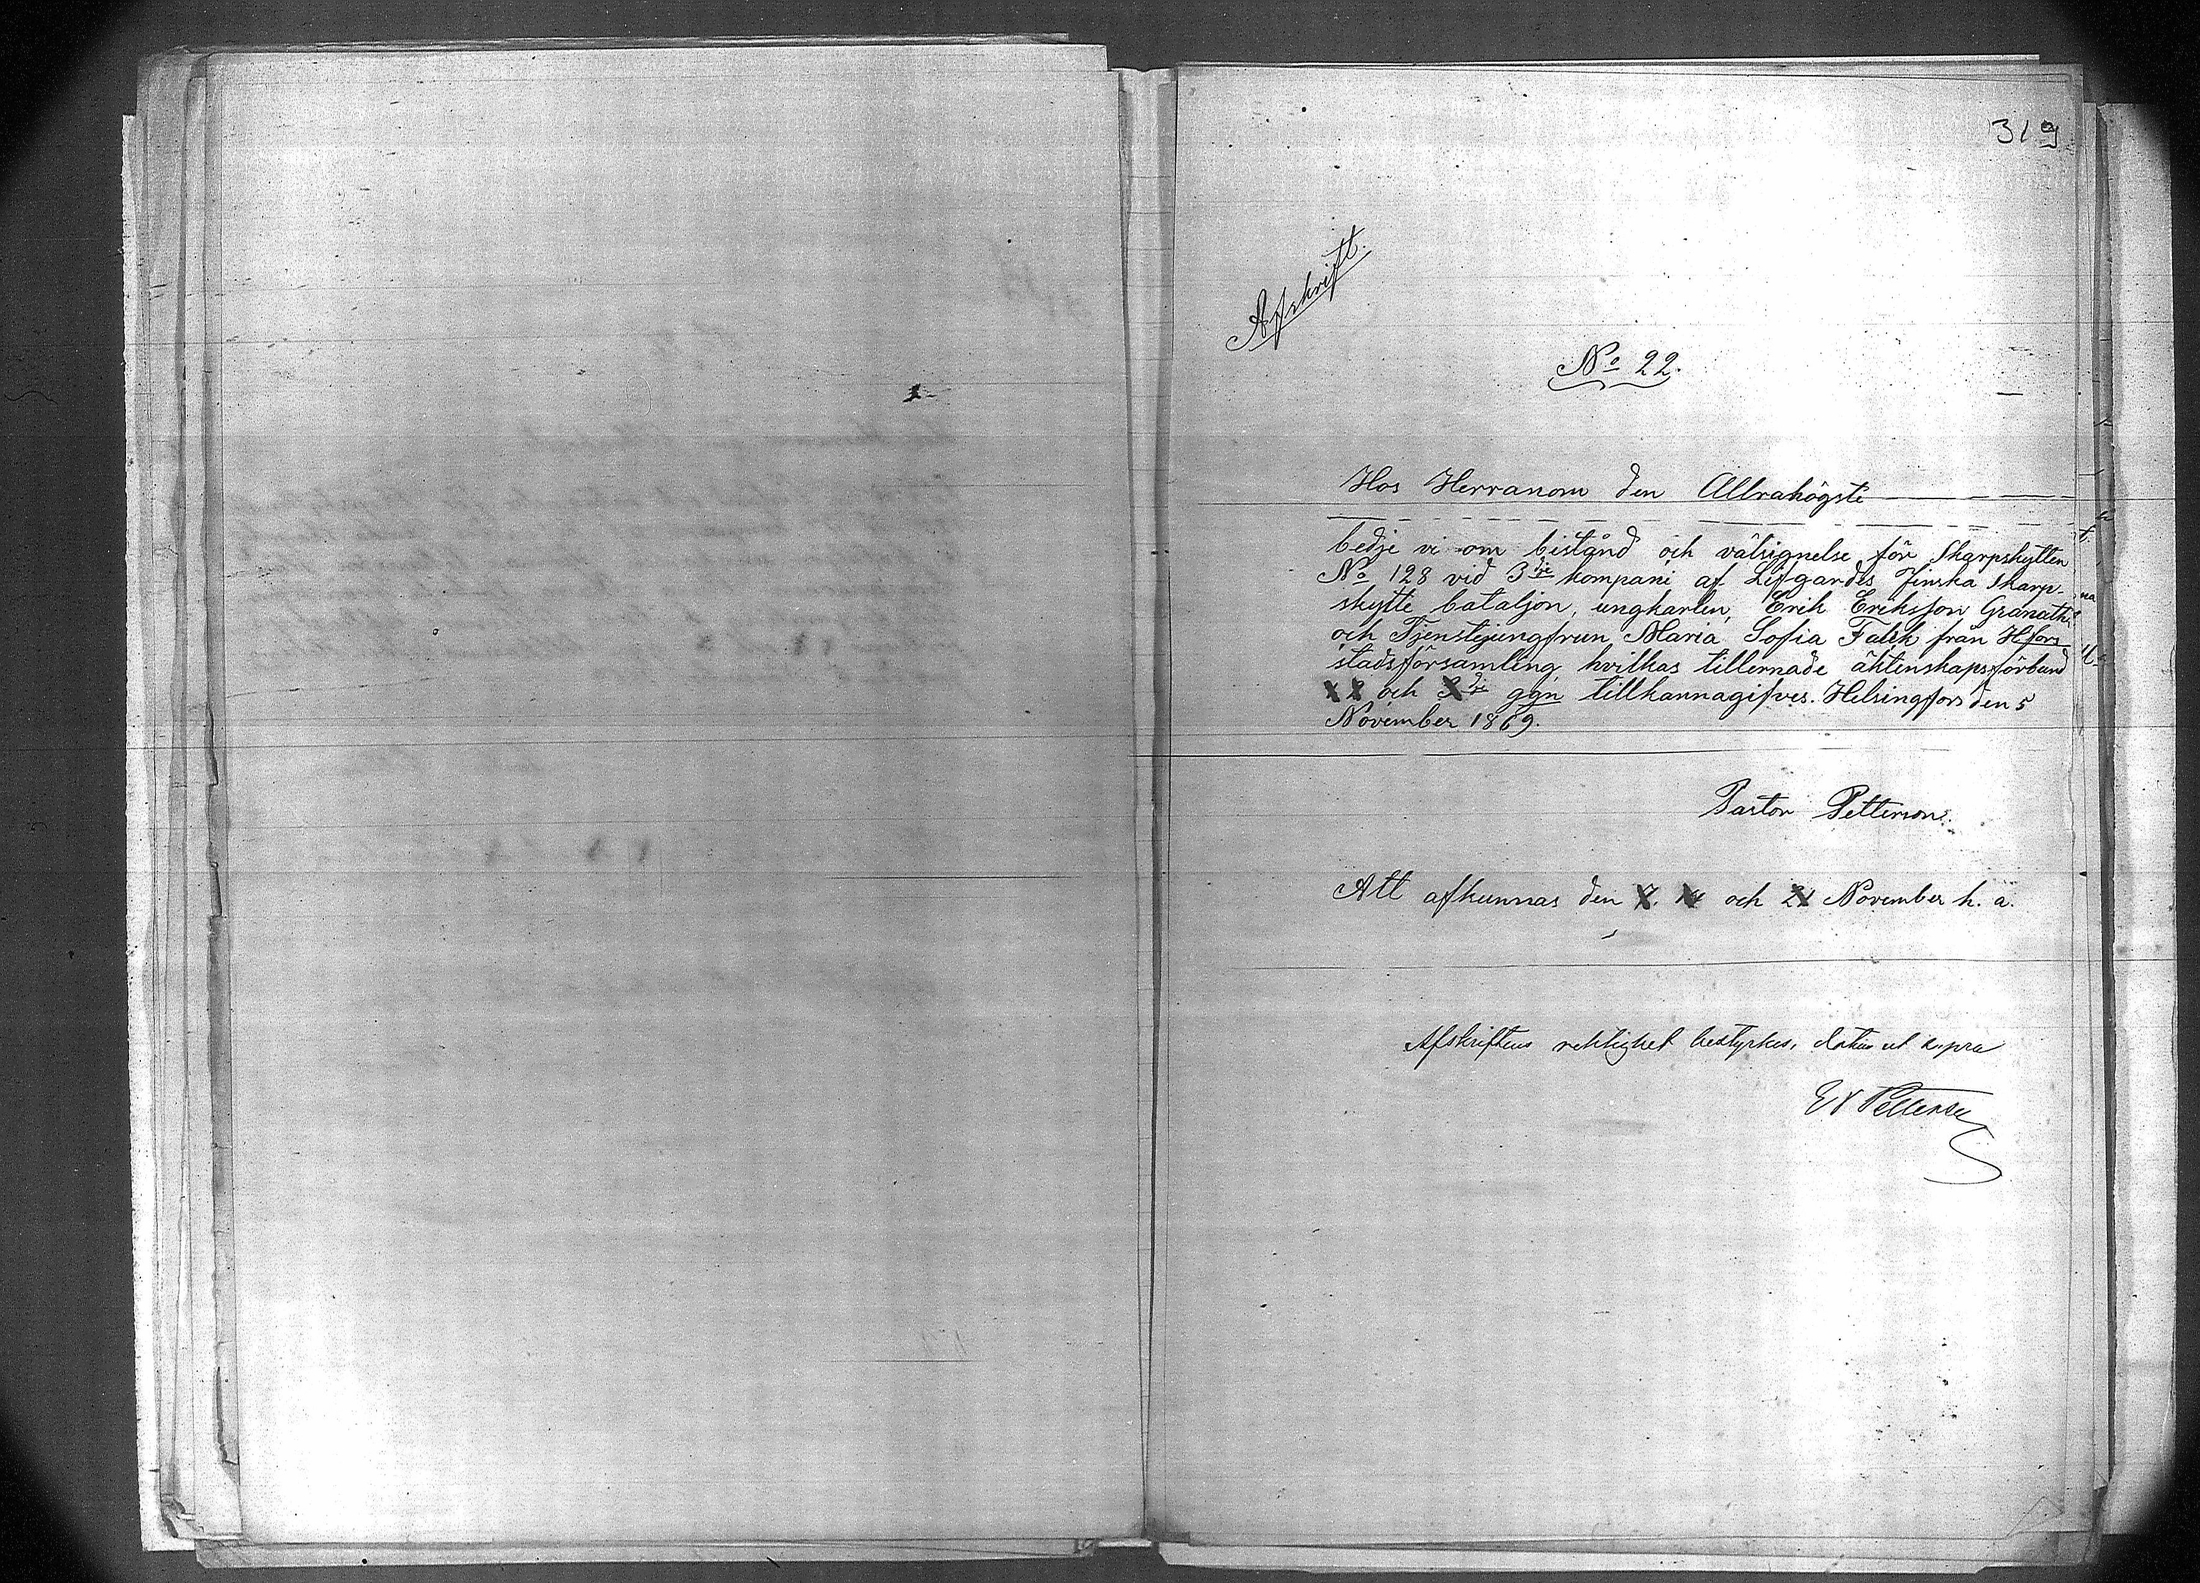 319
Afskrift.
No 22.
Hos Herranom den Allrahögste
bedje vi om bistånd och välsignelse för Skarpskytten
No 128 vid 3dje kompani af Lifgardes Finska Skarp-
skytte bataljon, ungkarlen, Erik Eriksson Granath
och Tjenstejungfrun Maria Sofia Falck från Hfors
stadsförsamling hvilkas tillernade äktenskapsförbund
1 2 och 3dje ggn tillkännagifves. Helsingfors den 5
November 1869.
Pastor Petterson.
Att afkunnas den 7. 14 och 21 November h. a.
Afskriftens riktighet bestyrkes, datum ut supra
Petterson